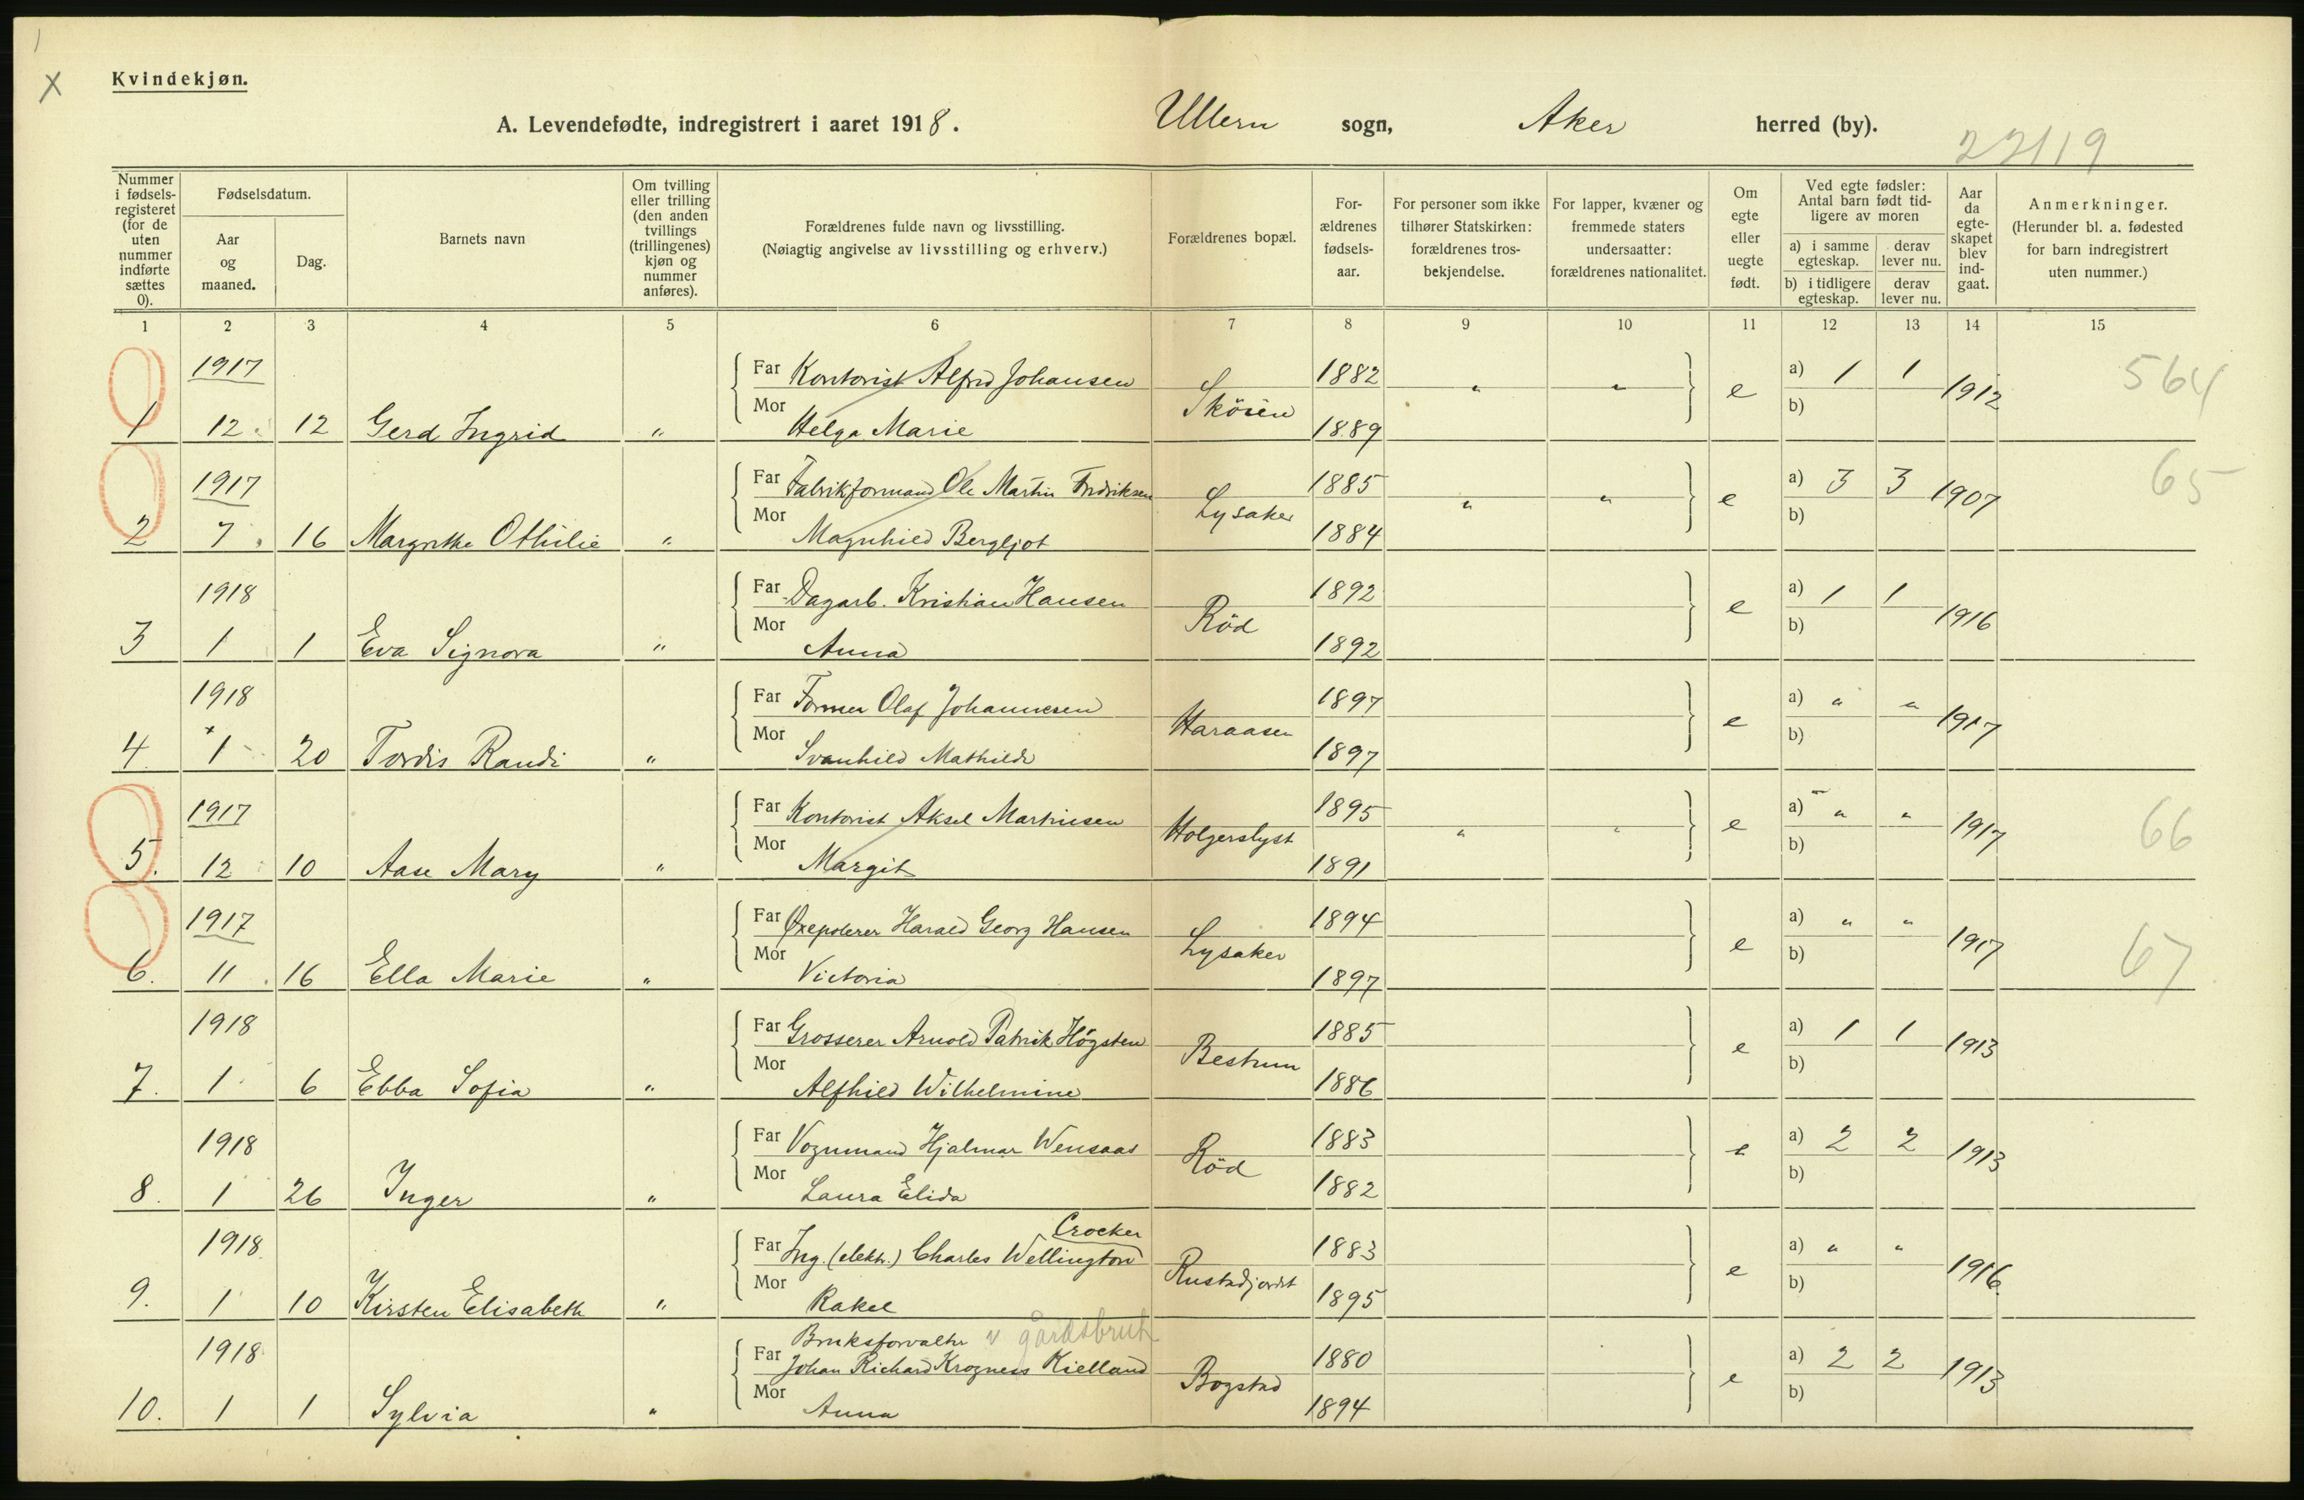 Kvindekjøn.
A. Levendefødte, indregistrert i aaret 1918. Ullern sogn, Aker herred (by).
22119
Nummer i fødselsregisteret (for de uten nummer indførte sættes 0).
Fødselsdatum.
Aar og maaned.
Dag.
Barnets navn
Om tvilling eller trilling (den anden tvillings (trillingenes) kjøn og nummer anføres).
Forældrenes fulde navn og livsstilling.
(Nøiagtig angivelse av livsstilling og erhverv.)
Forældrenes bopæl.
Forældrenes fødselsaar.
For personer som ikke tilhører Statskirken: forældrenes trosbekjendelse.
For lapper, kvæner og fremmede staters undersaatter: forældrenes nationalitet.
Om egte eller uegte født.
Ved egte fødsler: Antal barn født tidligere av moren
a) i samme egteskap.
derav lever nu.
b) i tidligere egteskap.
derav lever nu.
Aar da egteskapet blev indgaat.
Anmerkninger.
(Herunder bl. a. fødested for barn indregistrert uten nummer.)
1 2 3 4 5 6 7 8 9 10 11 12 13 14 15
1917 Far Kontorist Alfred Johansen 1882 a) 1 1 564
1 12. 12 Gerd Ingrid " Mor Helga Marie Skøien 1889 " " e b) 1912
1917 Far Fabrikformand Ole Martin Fredriksen 1885 a) 3 3 65
2 7. 16 Margrethe Othilie " Mor Magnhild Bergljot Lysaker 1884 " " e b) 1907
1918 Far Dagarb. Kristian Hansen 1892 a) 1 1
3 1 1 Eva Signora " Mor Anna Röd 1892 e b) 1916
1918 Far Former Olaf Johannesen 1897 a) " "
4. 1 20 Tordis Randi " Mor Svanhild Mathilde Haraasen 1897 e b) 1917
1917 Far Kontorist Aksel Martinsen 1895 a) " " 66
5. 12 10 Aase Mary " Mor Margit Holgerslyst 1891 " " e b) 1917
1917 Far Øxepolerer Harald Georg Hansen 1894 a) " " 67
6. 11. 16 Ella Marie " Mor Victoria Lysaker 1897 e b) 1917
1918 Far Grosserer Arnold Patrik Högsten 1885 a) 1 1
7. 1 6 Ebba Sofia " Mor Alfhild Wilhelmine Bestum 1886 e b) 1913
1918 Far Vognmand Hjalmar Wensaas 1883 a) 2 2
8. 1 26 Inger " Mor Laura Elida Röd 1882 e b) 1913
Crocker
1918 Far Ing. (elektr.) Charles Wellington 1883 a) " "
9. 1 10 Kirsten Elisabeth " Mor Rakel Rustadjordet 1895 e b) 1916
Bruksforvalter v gårdsbruk
1918 Far Johan Richard Krogness Kielland 1880 a) 2 2
10. 1 1 Sylvia " Mor Anna Bogstad 1894 e b) 1913